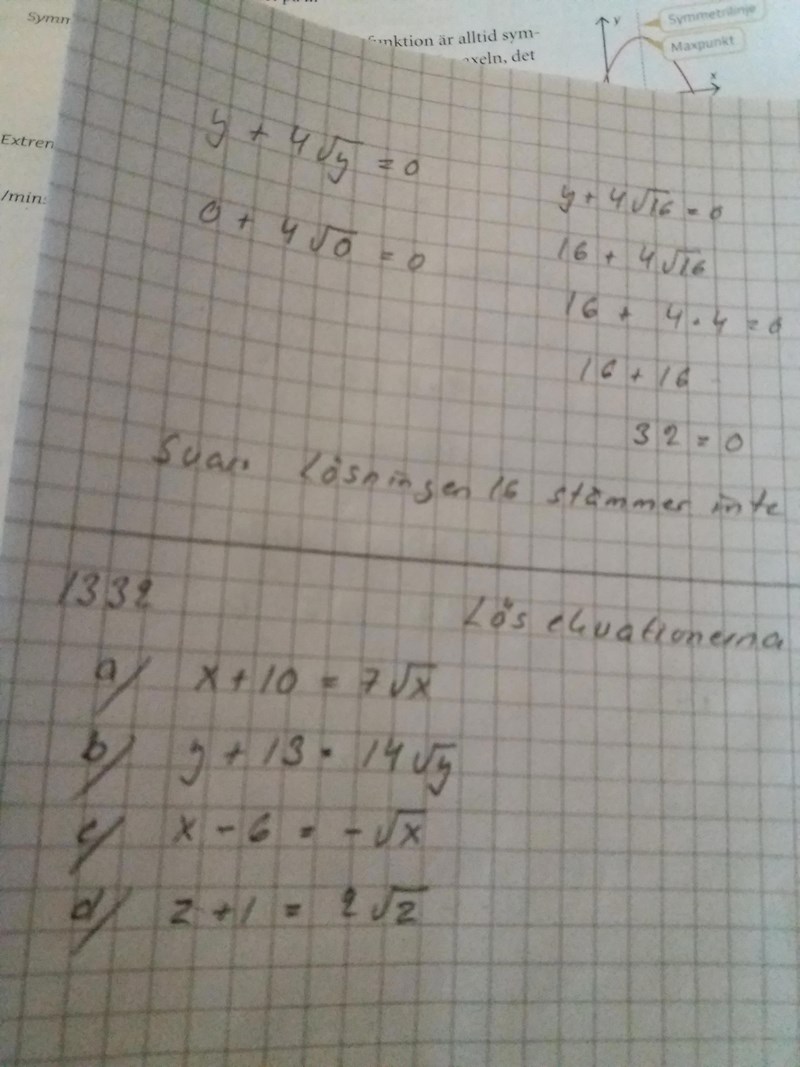 Symn
funktion är alltid sym-
xeln, det
y
Symmetrilinje
Maxpunkt
x
Extren
/min:
y + 4√y = 0
0 + 4√0 = 0
y + 4√16 = 0
16 + 4√16
16 + 4 · 4 = 0
16 + 16
32 = 0
Svar. Lösningen 16 stämmer inte
1332
Lös ekvationerna
a/ x + 10 = 7√x
b/ y + 13 = 14√y
c/ x - 6 = -√x
d/ z + 1 = 2√z